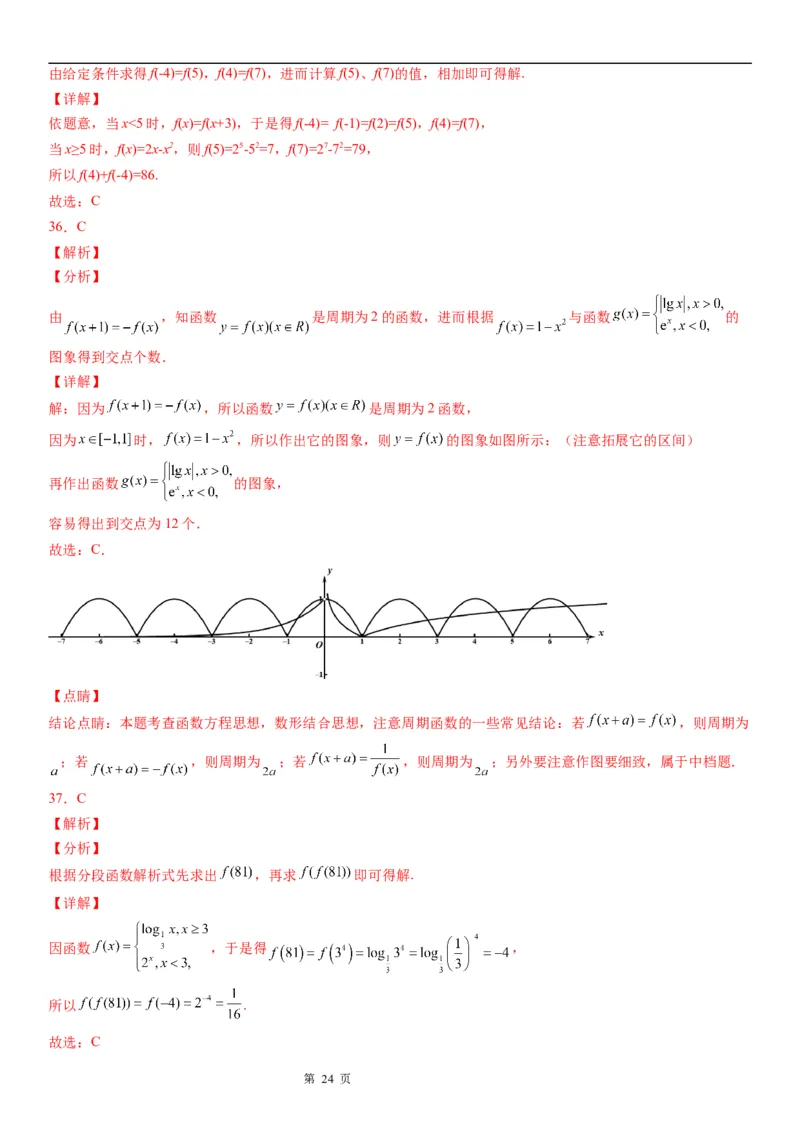 由给定条件求得f(-4)=f(5)，f(4)=f(7)，进而计算f(5)、f(7)的值，相加即可得解.
【详解】
依题意，当x<5时，f(x)=f(x+3)，于是得f(-4)= f(-1)=f(2)=f(5)，f(4)=f(7)，
当x≥5时，f(x)=2x-x²，则f(5)=2⁵-5²=7，f(7)=2⁷-7²=79，
所以f(4)+f(-4)=86.
故选：C
36．C
【解析】
【分析】
由 f(x+1)=−f(x) ，知函数 y=f(x)(x∈R) 是周期为2的函数，进而根据 f(x)=1−x² 与函数 g(x)={|lg x|, x>0, eˣ, x<0, 的
图象得到交点个数．
【详解】
解：因为 f(x+1)=−f(x) ，所以函数 y=f(x)(x∈R) 是周期为2函数，
因为 x∈[−1,1] 时， f(x)=1−x² ，所以作出它的图象，则 y=f(x) 的图象如图所示：（注意拓展它的区间）
再作出函数 g(x)={|lg x|, x>0, eˣ, x<0, 的图象，
容易得出到交点为12个．
故选：C．
y
1
−7 −6 −5 −4 −3 −2 −1 O 1 2 3 4 5 6 7 x
−1
【点睛】
结论点睛：本题考查函数方程思想，数形结合思想，注意周期函数的一些常见结论：若 f(x+a)=f(x) ，则周期为
a ；若 f(x+a)=−f(x) ，则周期为 2a ；若 f(x+a)=1/f(x) ，则周期为 2a ；另外要注意作图要细致，属于中档题．
37．C
【解析】
【分析】
根据分段函数解析式先求出 f(81) ，再求 f(f(81)) 即可得解.
【详解】
因函数 f(x)={log_{1/3} x, x≥3 2ˣ, x<3, ，于是得 f(81)=f(3⁴)=log_{1/3} 3⁴=log_{1/3} (1/3)⁻⁴=−4 ，
所以 f(f(81))=f(−4)=2⁻⁴=1/16 .
故选：C
第 24 页